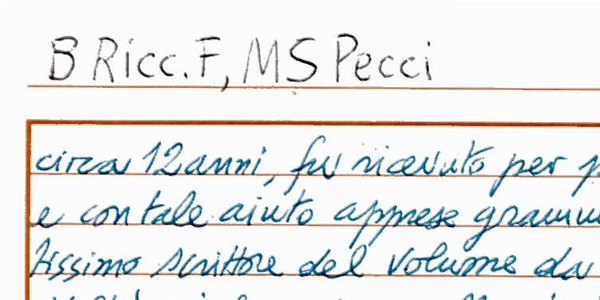 B Ricc. F, MS Pecci
circa 12 anni, fu ricevuto per
e con tale aiuto apprese
tissimo scrittore del volume da